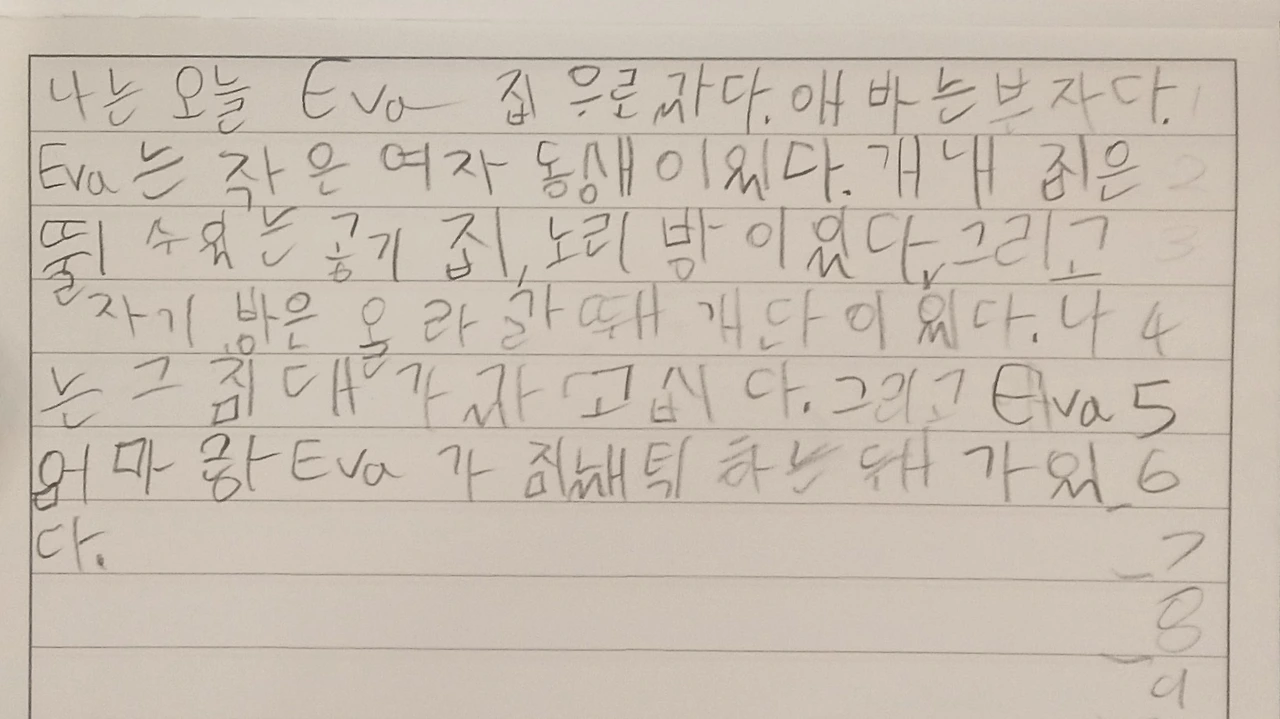 나는 오늘 Eva 집 으로 깠다. 애 바는 부자다. 1
Eva 는 작은 여자 동생 이 있다. 개 내 집은 2
뛸 수 있는 공기 집, 노리 방 이 있다, 그리고 3
자기 방은 올 라 갈 때 개단 이 있다. 나 4
는 그 침대 가 갖 고 십 다. 그리고 Eva 5
엄마 랑 Eva 가 짐내틱 하는 대 가 있 6
다. 7
8
9